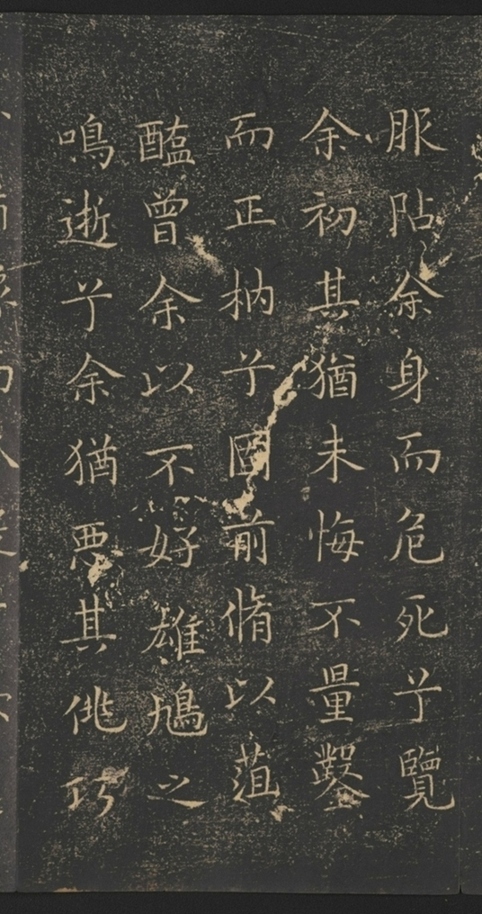 服阽余身而危死兮覽
余初其猶未悔不量鑿
而正枘兮固前脩以菹
醢曾余以不好雄鳩之
鳴逝兮余猶惡其佻巧